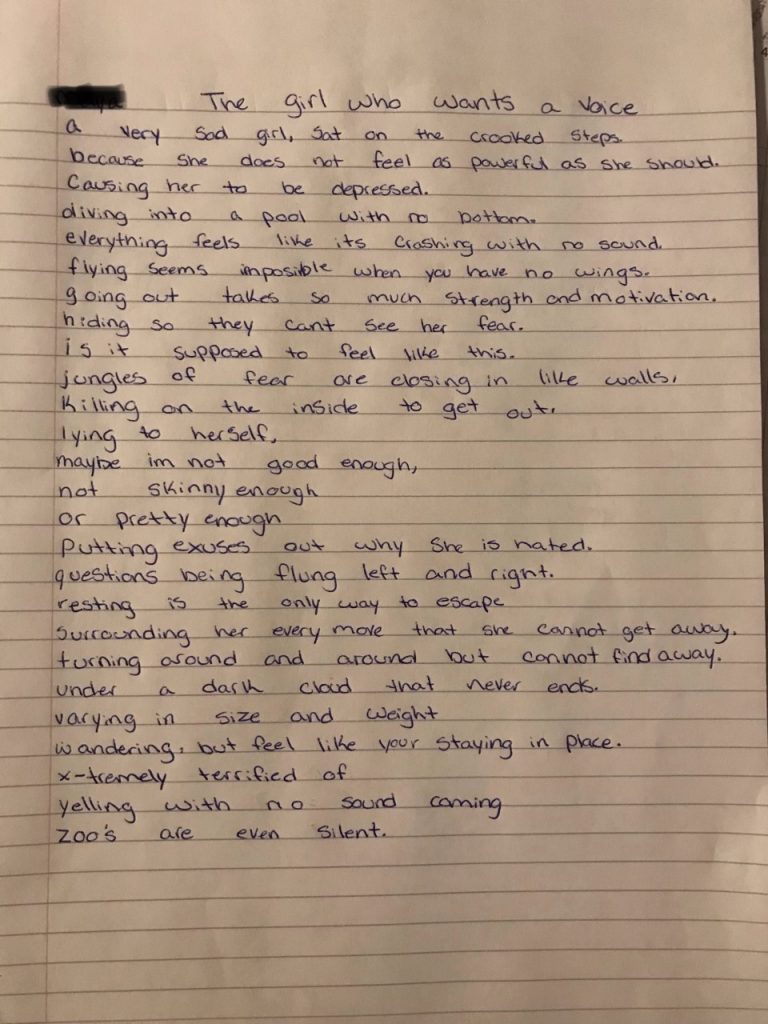 The girl who wants a voice
a very sad girl, sat on the crooked steps.
because she does not feel as powerful as she should.
Causing her to be depressed.
diving into a pool with no bottom.
everything feels like its crashing with no sound.
flying seems imposible when you have no wings.
going out takes so much strength and motivation.
hiding so they cant see her fear.
is it supposed to feel like this.
jungles of fear are closing in like walls,
killing on the inside to get out,
lying to herself,
maybe im not good enough,
not skinny enough
or pretty enough
putting exuses out why she is hated.
questions being flung left and right.
resting is the only way to escape
surrounding her every move that she cannot get away.
turning around and around but cannot find away.
under a dark cloud that never ends.
varying in size and weight
wandering, but feel like your staying in place.
x-tremely terrified of
yelling with no sound coming
zoo's are even silent.